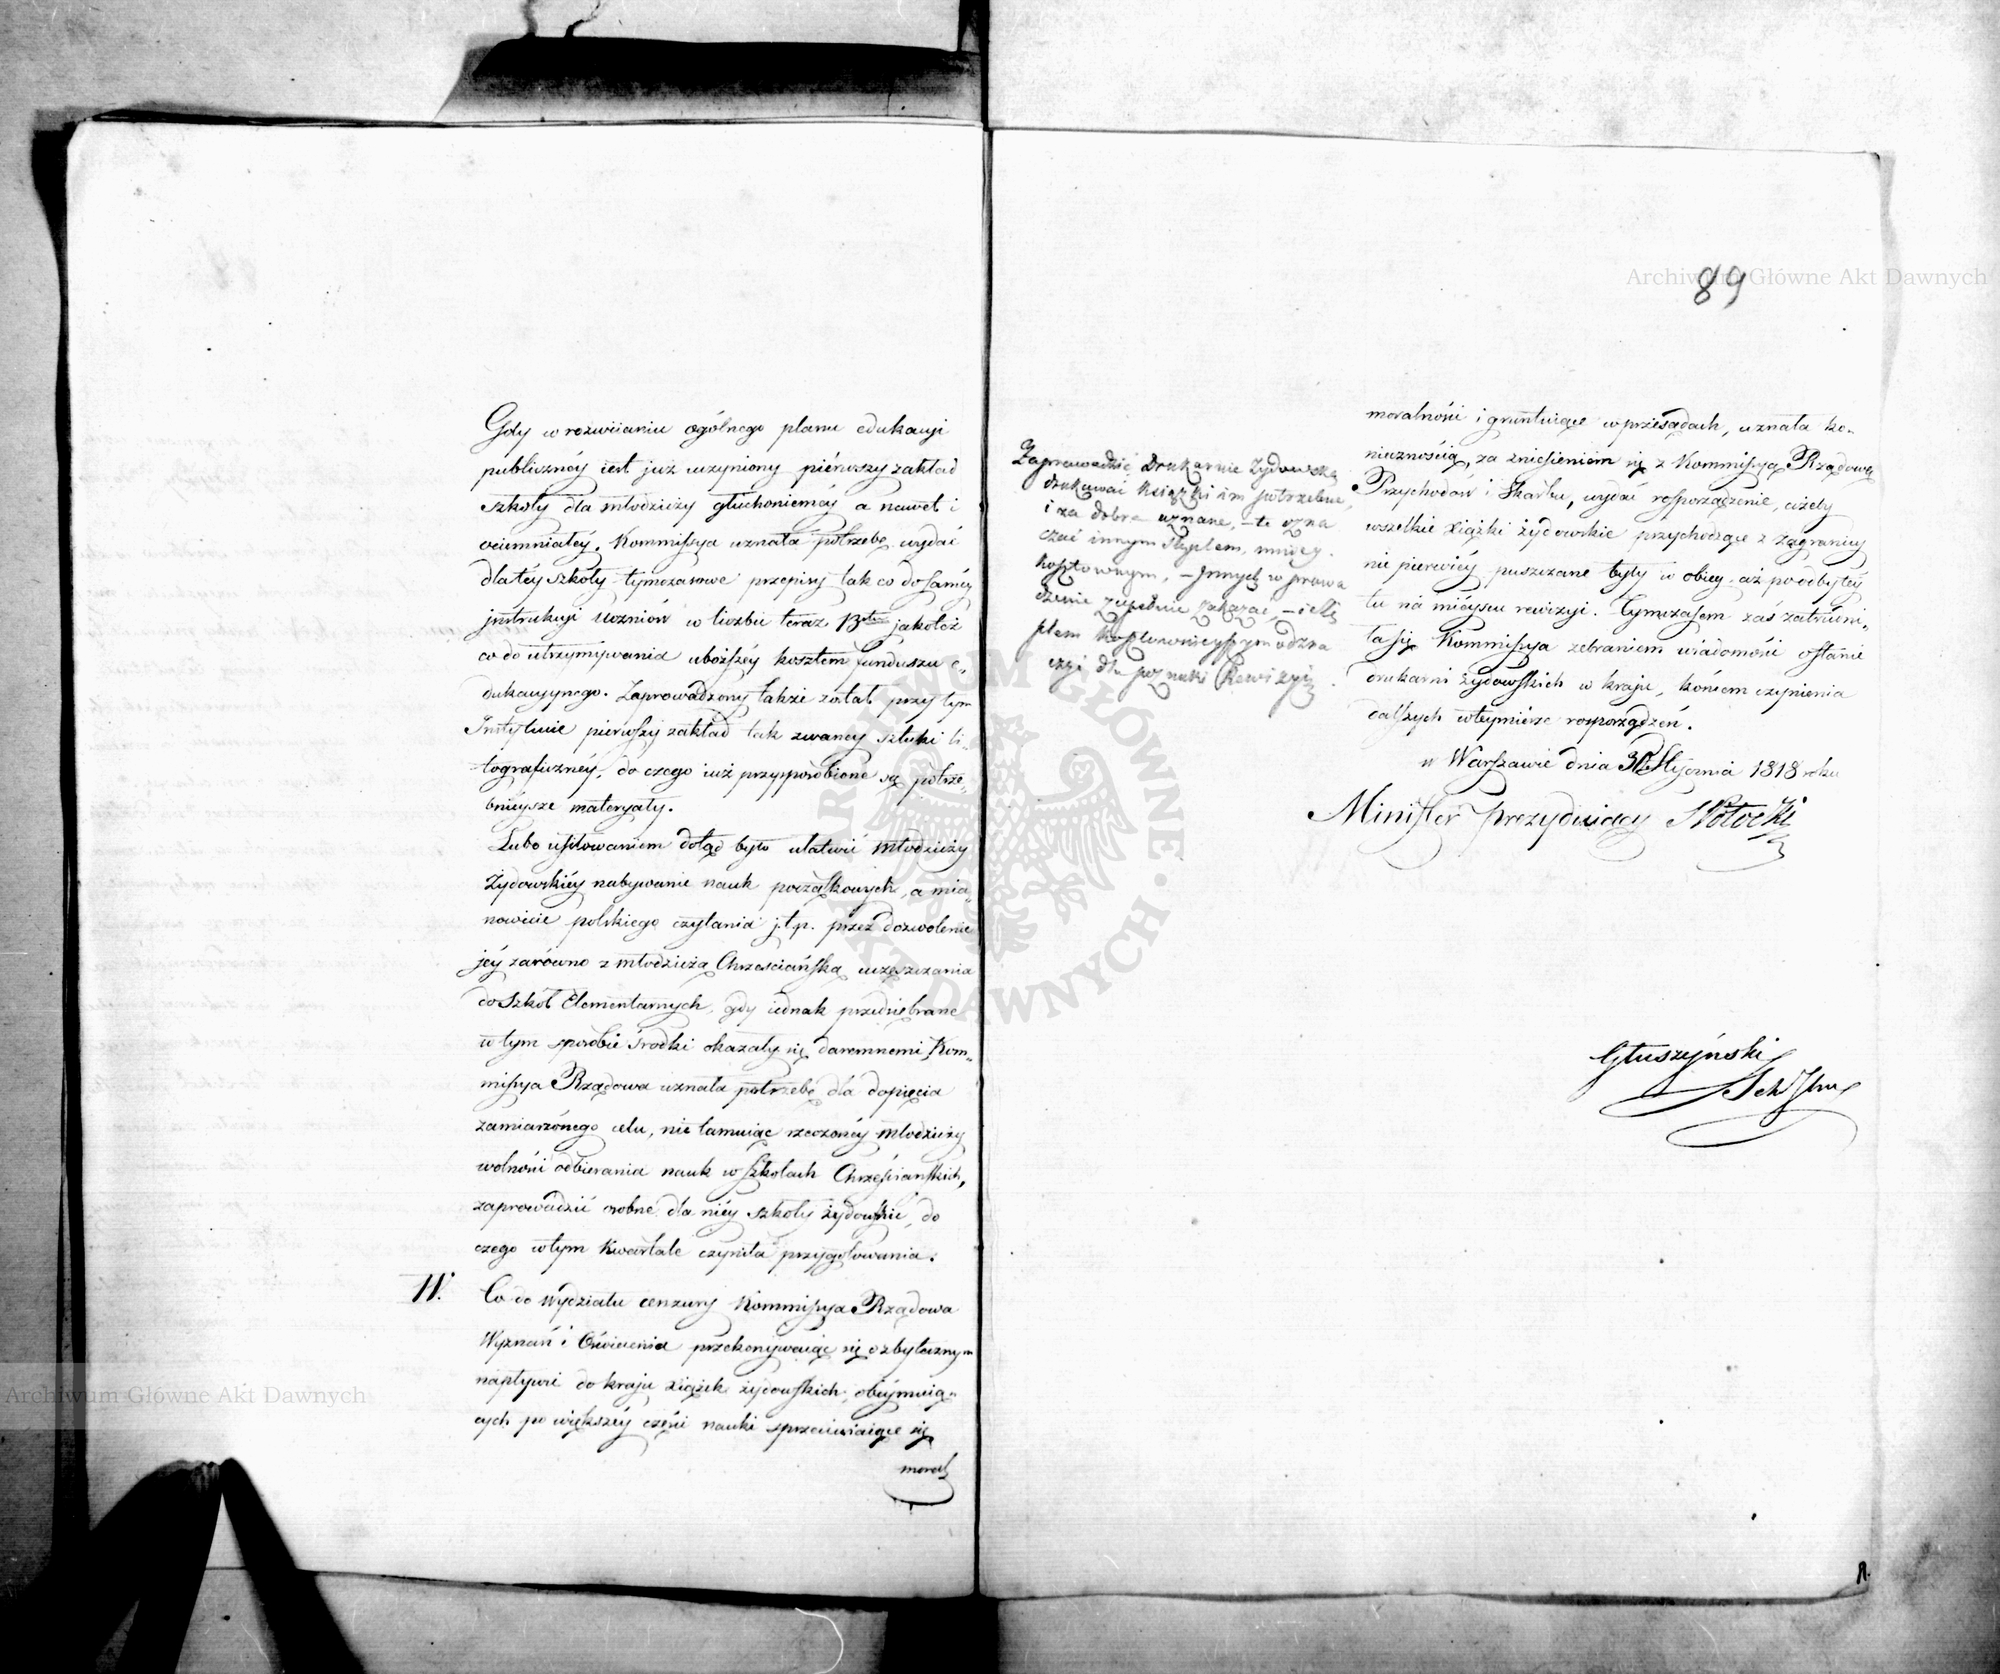 Gdy w rozwiianiu ogólnego planu edukacyi
publicznéy iest już uczyniony piérwszy zakład
szkoły dla młodzieży głuchonieméy a nawet i
ociemniałéy. Kommissya uznała potrzebę wydać
dla téy szkoły tymczasowe przepisy tak co do saméy
jnstrukcyi Uczniów w liczbie teraz 13stu jakoteż
co do utrzymywania uboższéy kosztem funduszu e-
dukacyynego. Zaprowadzony także został przy tym
Instytucie pierwszy zakład tak zwanéy sztuki li-
tograficznéy, do czego iuż przysposobione są potrze-
bnieysze materyały.
Lubo usiłowaniem dotąd było ułatwić młodzieży
Żydowskiéy nabywanie nauk początkowych, a mia-
nowicie polskiego czytania j.t.p. przez dozwolenie
jéy zarówno z młodzieżą Chrzesciańską uczęszczania
do Szkół Elementarnych, gdy iednak przedsiębrane
w tym sposobie środki okazały się daremnemi Kom-
missya Rządowa uznała potrzebę dla dopięcia
zamierzónego celu, nie tamuiąc rzeczonéy młodzieży
wolności odbierania nauk w szkołach Chrześciańskich,
zaprowadzić osobne dla niéy szkoły żydowskie, do
czego w tym Kwartale czyniła przygotowania.
IV. Co do Wydziału cenzury Kommissya Rządowa
Wyznań i Oświecenia przekonywaiąc się o zbytecznym
napływie do kraju xiążek żydowskich, obéymuią-
cych po większéy części nauki sprzeciwiaiące się
moral
89
Zaprowadzić Drukarnie Żydowską
drukować Książki im potrzebne,
i za dobre uznane, – te ozna
czać innym stęplem, mniéy
kosztownym, – Jnnych wprowa
dzenie zupełnie zakazać, –
dla Rewizyi
moralności i gruntuiące w przesądach, uznała ko-
niecznością, za zniesieniem się z Kommissyą Rządową
Przychodów i Skarbu, wydać rosporządzenie, ażeby
wszelkie Xiążki żydowskie przychodzące z zagranicy
nie pierwiéy puszczane były w obieg, aż po odbytéy
tu na mieyscu rewizyi. Tymczasem zaś zatrudni-
ła się Kommissya zebraniem wiadomości o stanie
drukarni żydowskich w kraju, końcem czynienia
dalszych w téymierze rosporządzeń.
w Warszawie dnia 30 Stycznia 1818 roku
Minister Prezyduiący S Potocki
Głuszyński